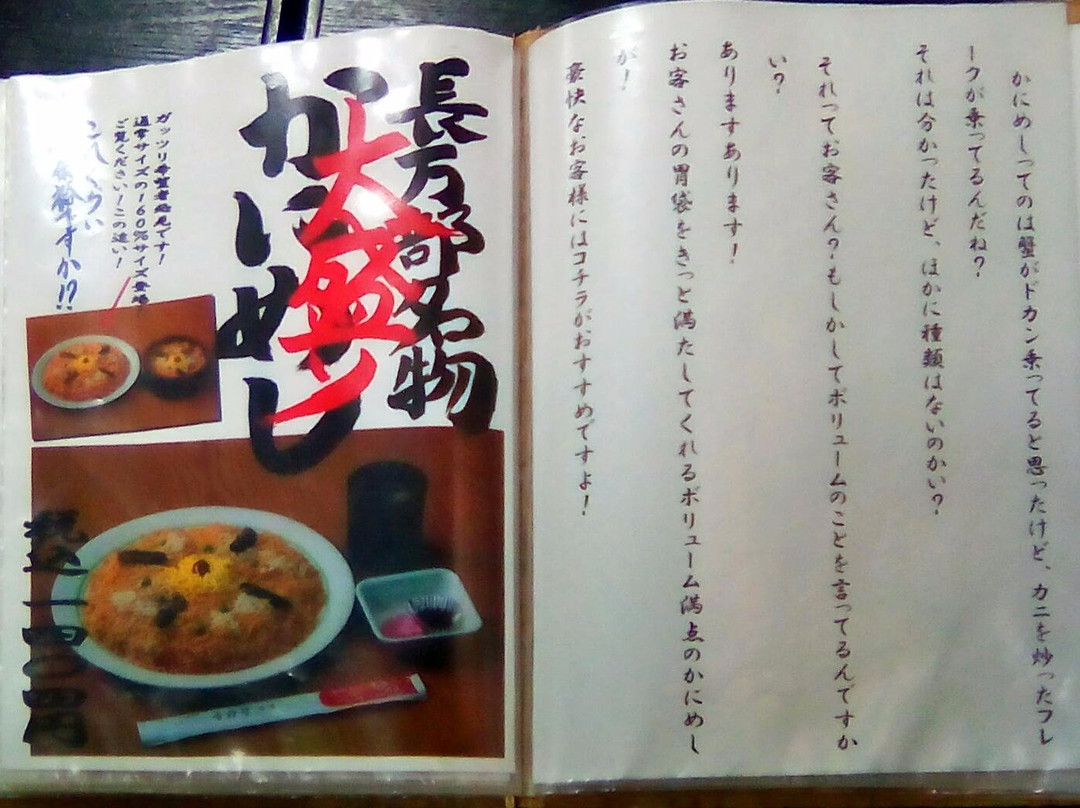 かにめしってのは蟹がドカン乗ってると思ったけど、カニを炒ったフレ
ークが乗ってるんだね？
それは分かったけど、ほかに種類はないのかい？
それってお客さん？もしかしてボリュームのことを言ってるんですか
い？
ありますあります！
お客さんの胃袋をきっと満たしてくれるボリューム満点のかにめし
が！
豪快なお客様にはコチラがおすすめですよ！
長万部名物
大盛り
かにめし
ガッツリ希望者必見です！
通常サイズの160%サイズ登場
ご覧ください！この違い！
これくらい
余裕ですか!?
税込一四〇四円